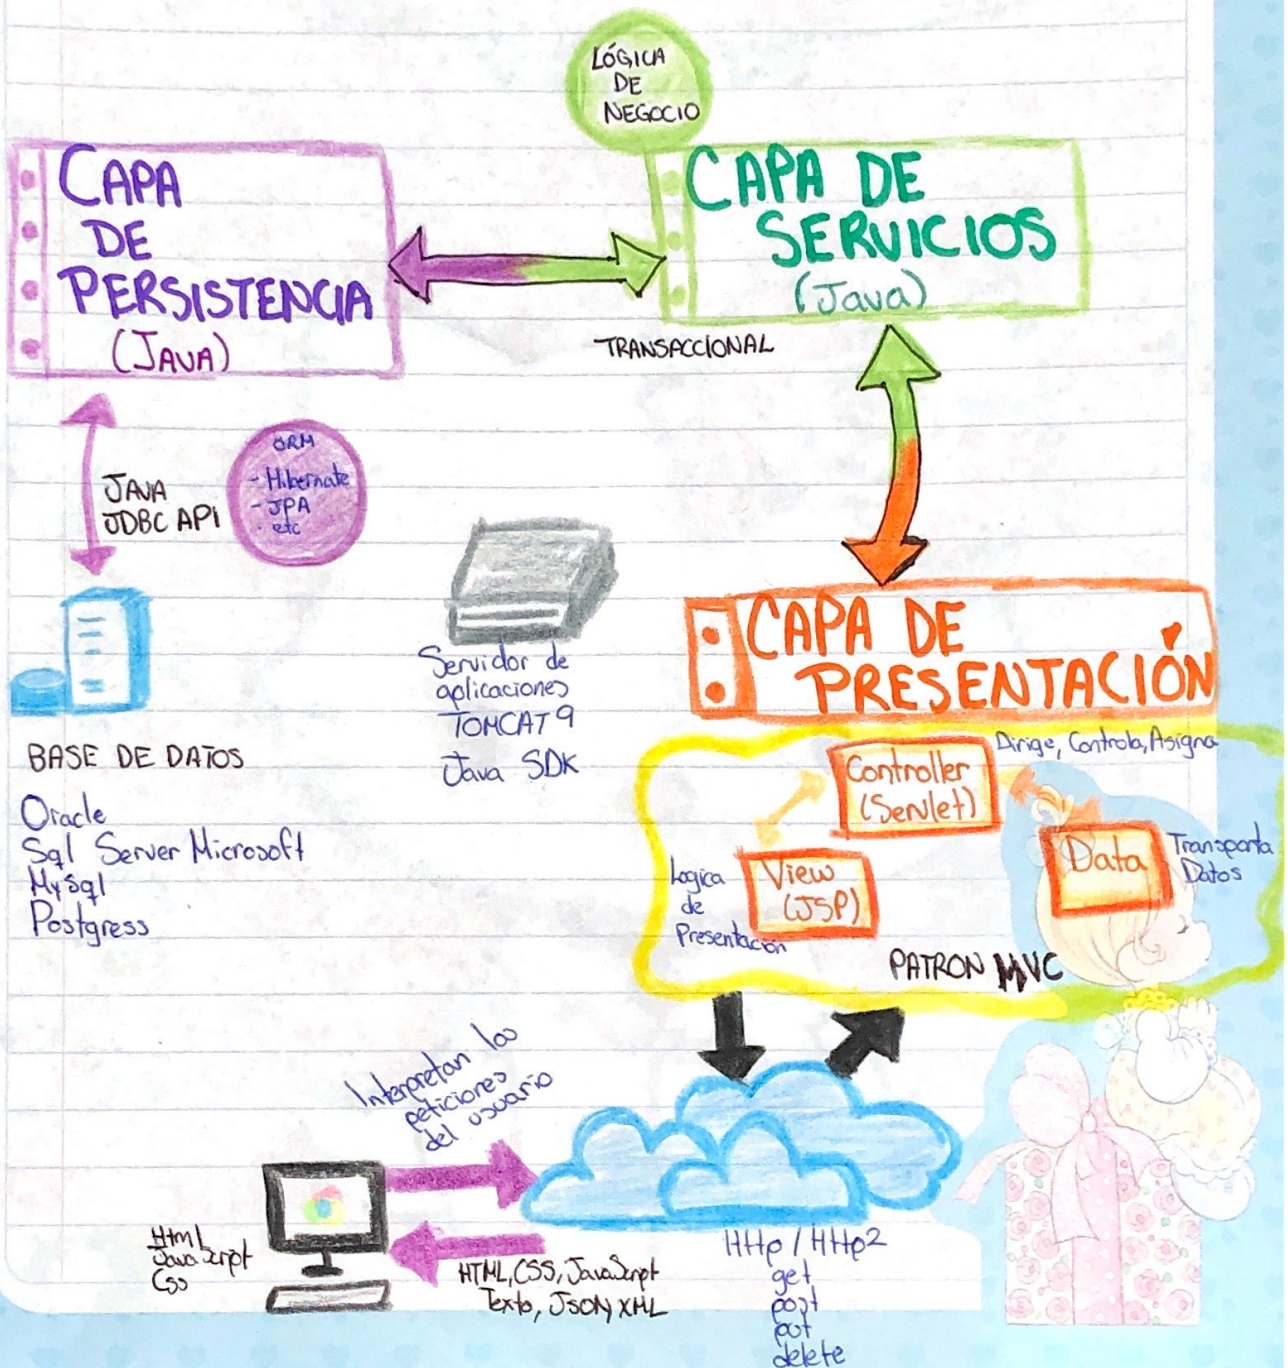 LÓGICA
DE
NEGOCIO
CAPA
DE
PERSISTENCIA
(JAVA)
CAPA DE
SERVICIOS
(Java)
TRANSACCIONAL
JAVA
JDBC API
ORM
- Hibernate
- JPA
- etc
Servidor de
aplicaciones
TOMCAT 9
Java SDK
CAPA DE
PRESENTACIÓN
BASE DE DATOS
Oracle
Sql Server Microsoft
MySql
Postgress
Controller
(Servlet)
Dirige, Controla, Asigna
Data
Transporta
Datos
View
(JSP)
Logica
de
Presentación
PATRON MVC
Interpretan las
peticiones
del usuario
Html
JavaScript
Css
HTML, CSS, JavaScript
Texto, JSON, XML
HHp / HHp2
get
post
put
delete